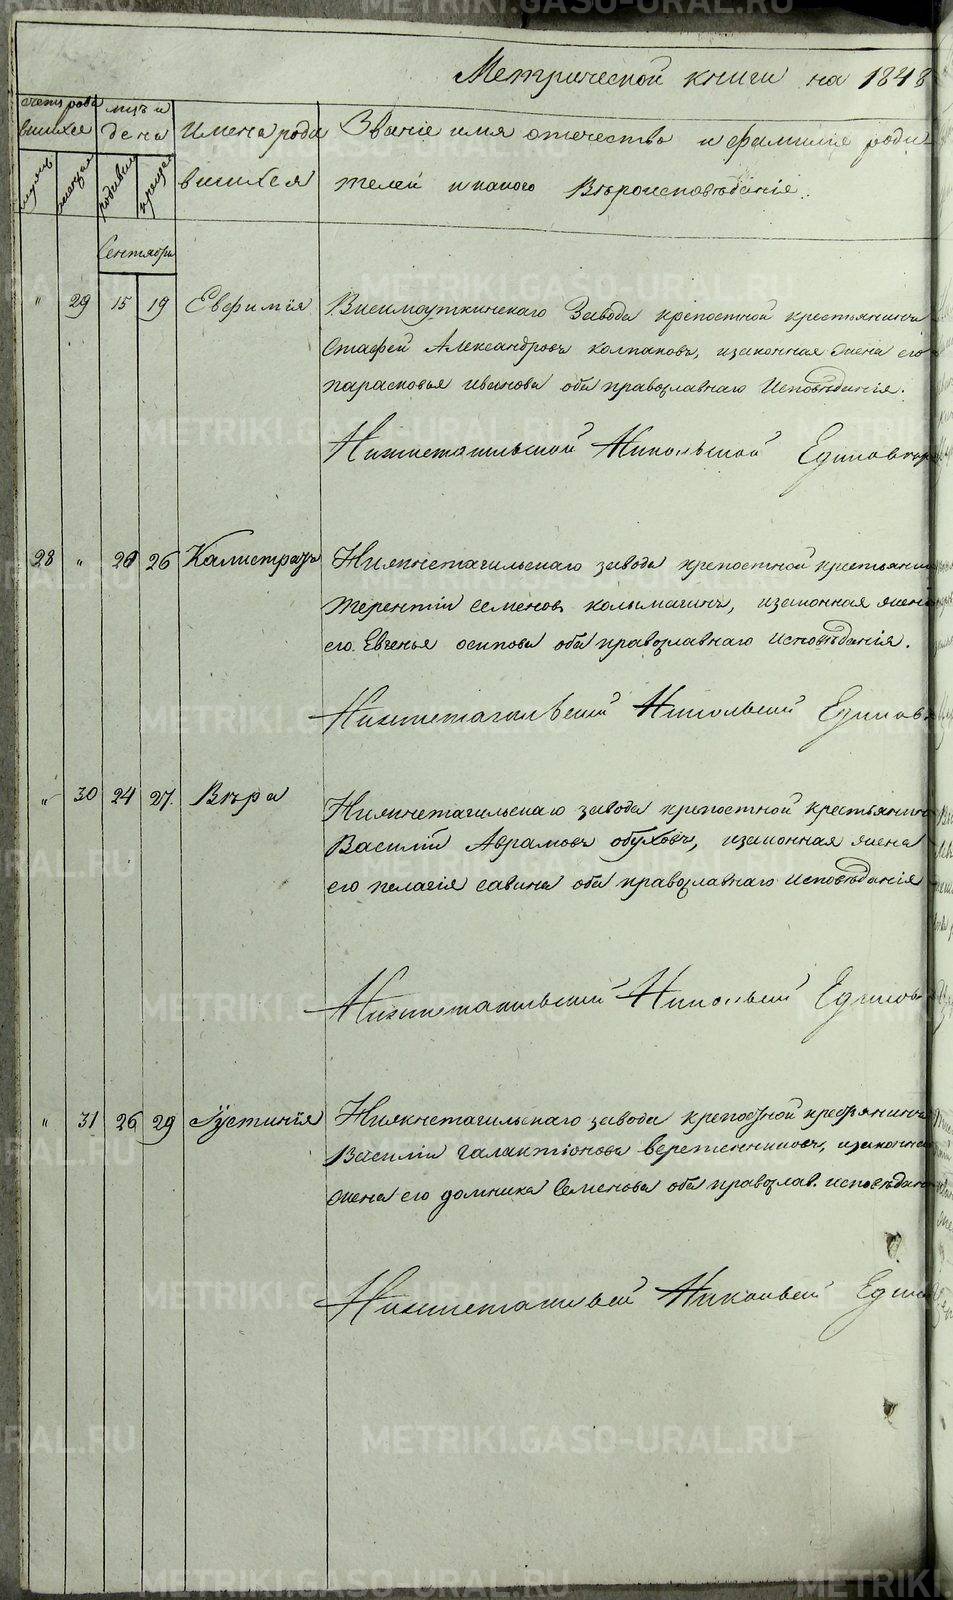 Метрической книги на 1848
счетъ родившихся
мцъ и дена
Имена родившихся
Званіе имя отечество и фамиліе родителей и какого Вѣроисповѣданіе.
Сентября
" 29 15 19 Евфимія
Висимоуткинскаго Завода крѣпостной крестьянинъ
Стафей Александровъ колпаковъ, изаконная жена его
парасковья иванова оба православнаго Исповѣданія.
Нижнетагильской Никольской Единовѣр
28 " 20 26 Калистратъ
Нижнетагильскаго завода крепостной крестьянин
терентій семеновъ колымагинъ, изаконная жена
его Евгенья осипова оба православнаго исповѣданія.
Нижнетагильскій Никольскій Единов
" 30 24 27. Вѣра
Нижнетагильскаго завода крепостной крестьянинъ
Василій Аврамовъ обуховъ, изаконная жена
его пелагія савина оба православнаго исповѣданія
Нижнетагильскій Никольскій Единов
" 31 26 29 Іустинія
Нижнетагильскаго завода крепостной крестьянинъ
Василій галактіоновъ веретенниковъ, изаконная
жена его домника семенова оба православ. исповѣдан
Нижнетагильскій Никольскій Един
METRIKI.GASO-URAL.RU